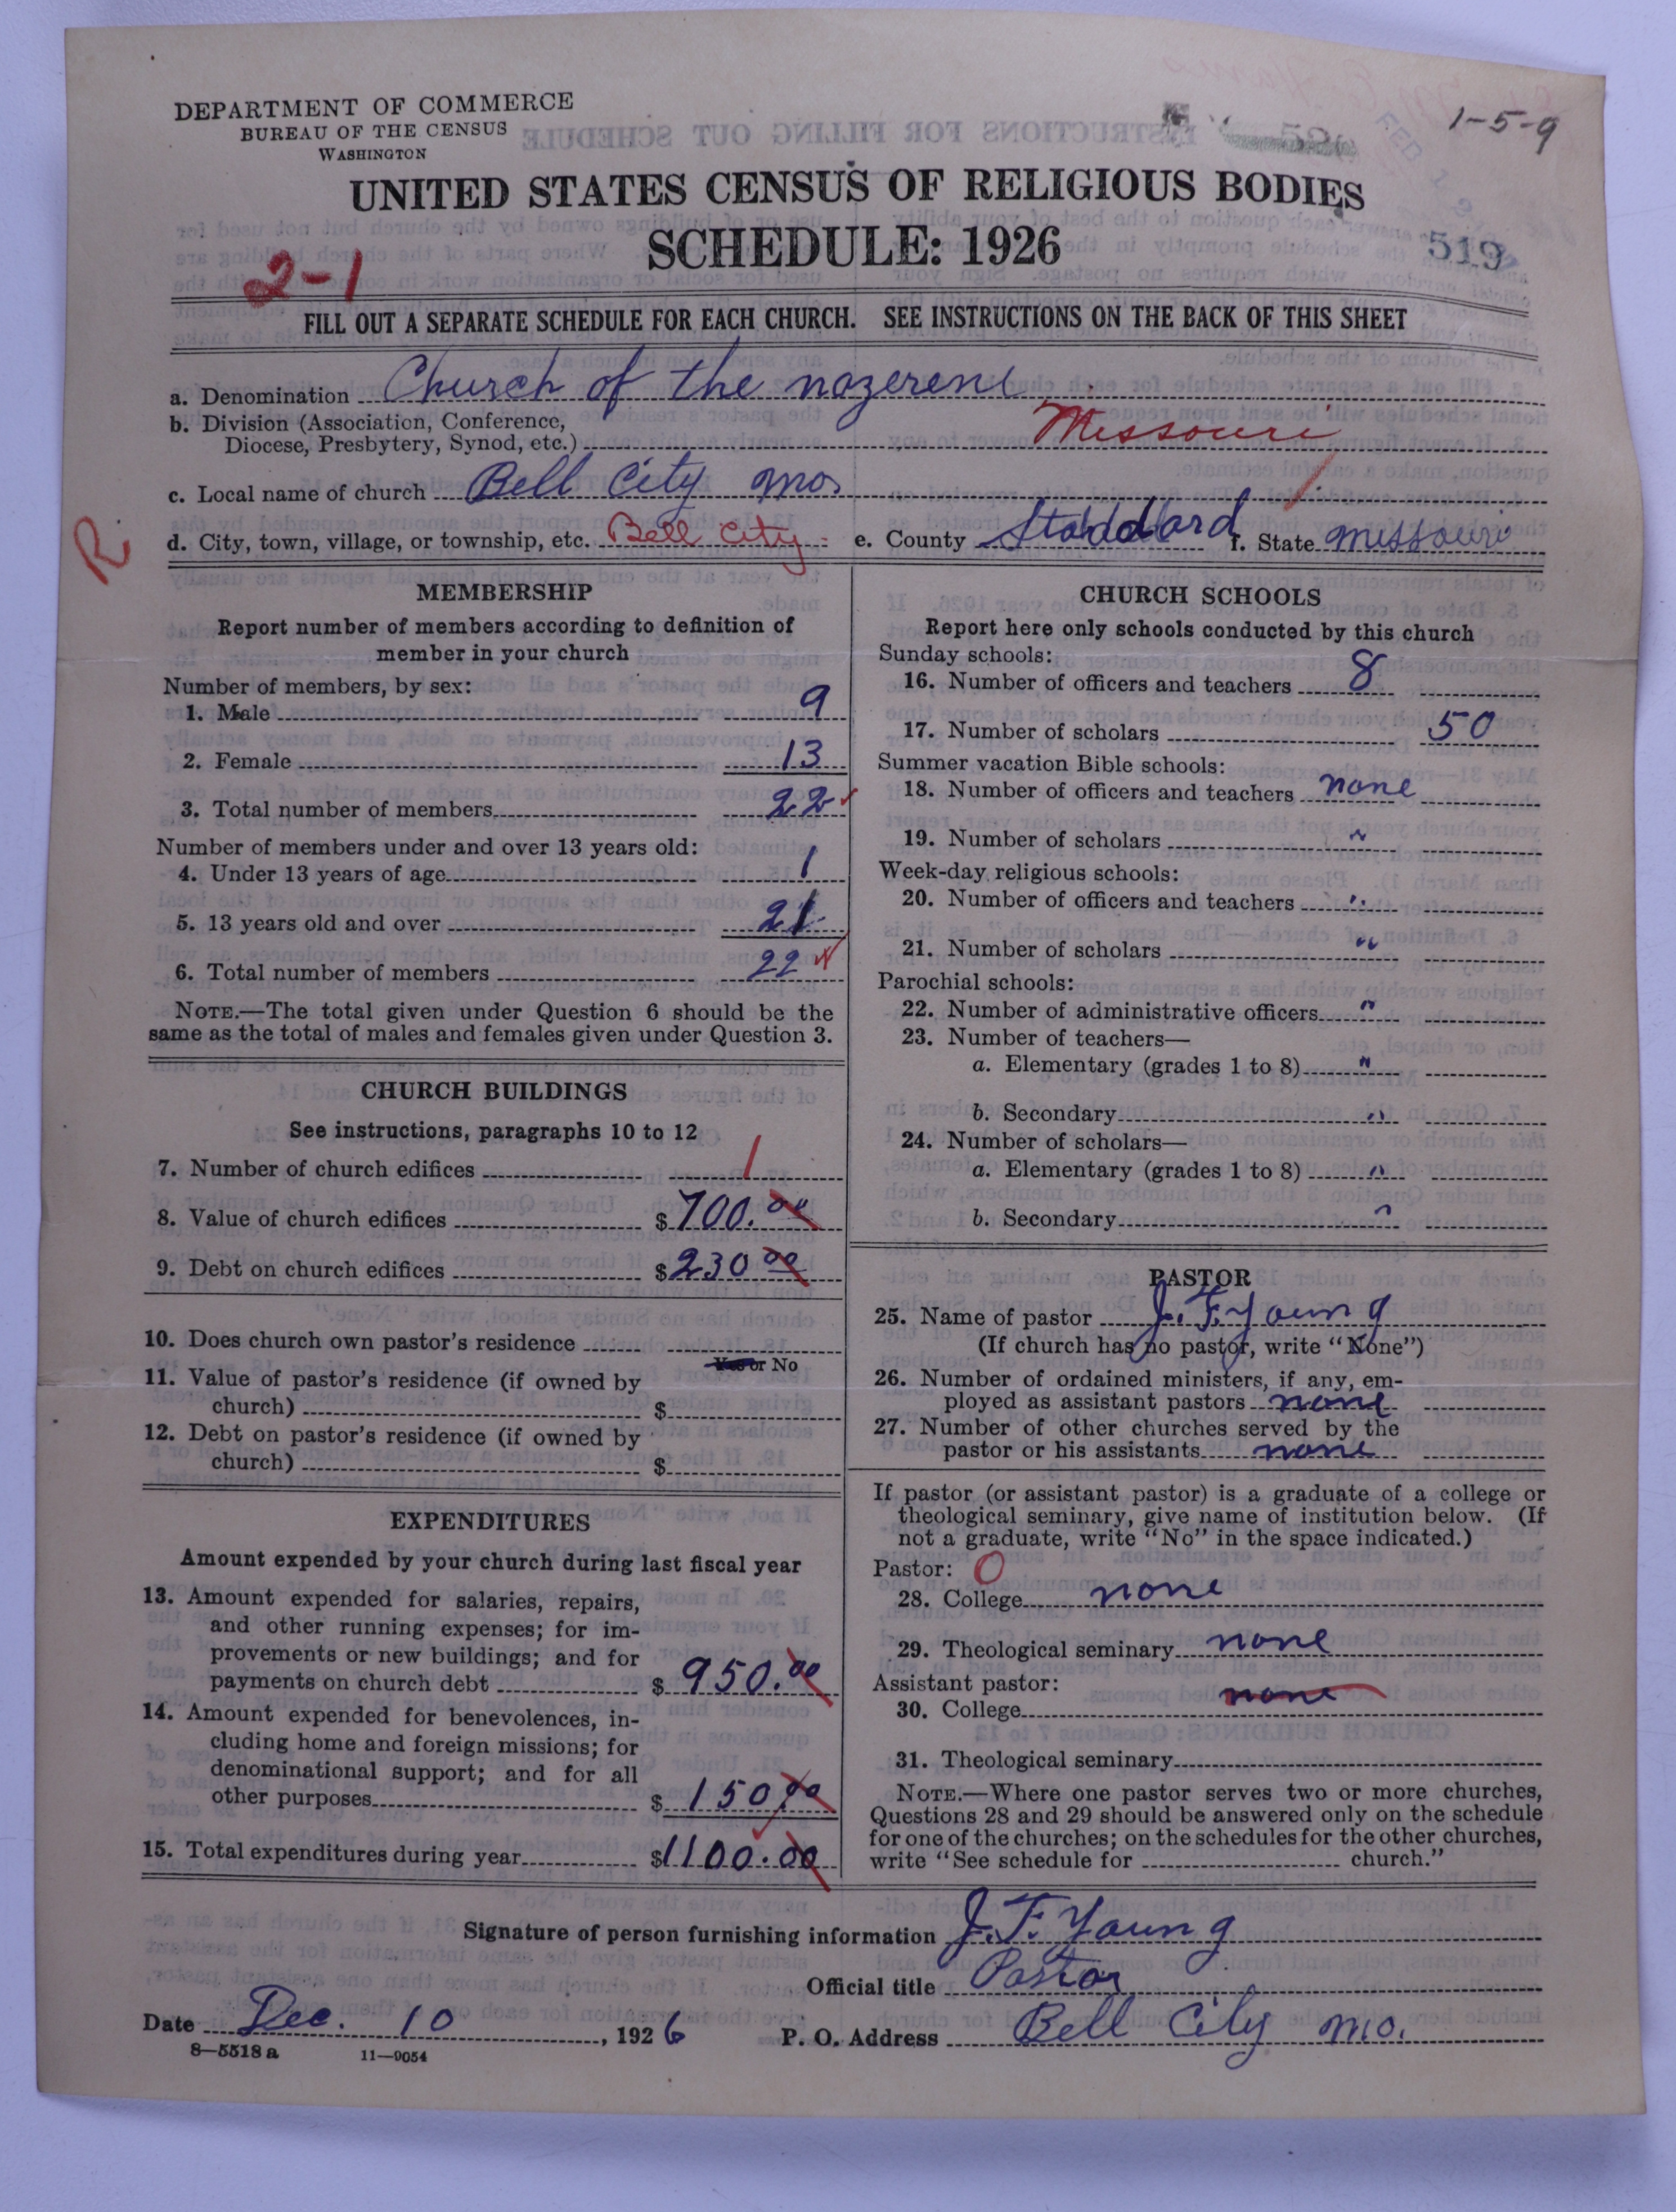 DEPARTMENT OF COMMERCE
BUREAU OF THE CENSUS
WASHINGTON
1-5-9
UNITED STATES CENSUS OF RELIGIOUS BODIES
SCHEDULE: 1926
519
2-1
FILL OUT A SEPARATE SCHEDULE FOR EACH CHURCH. SEE INSTRUCTIONS ON THE BACK OF THIS SHEET
a. Denomination Church of the nazerene
b. Division (Association, Conference,
Diocese, Presbytery, Synod, etc.) Missouri
c. Local name of church Bell City mo,
R
d. City, town, village, or township, etc. Bell City e. County Stoddard f. State missouri
MEMBERSHIP
Report number of members according to definition of
member in your church
Number of members, by sex:
1. Male 9
2. Female 13
3. Total number of members 22
Number of members under and over 13 years old:
4. Under 13 years of age 1
5. 13 years old and over 21
6. Total number of members 22
NOTE.—The total given under Question 6 should be the
same as the total of males and females given under Question 3.
CHURCH BUILDINGS
See instructions, paragraphs 10 to 12
7. Number of church edifices 1
8. Value of church edifices $700.00
9. Debt on church edifices $230 00
10. Does church own pastor's residence
Yes or No
11. Value of pastor's residence (if owned by
church) $
12. Debt on pastor's residence (if owned by
church) $
EXPENDITURES
Amount expended by your church during last fiscal year
13. Amount expended for salaries, repairs,
and other running expenses; for im-
provements or new buildings; and for
payments on church debt $ 950.00
14. Amount expended for benevolences, in-
cluding home and foreign missions; for
denominational support; and for all
other purposes $ 150.00
15. Total expenditures during year $1100.00
CHURCH SCHOOLS
Report here only schools conducted by this church
Sunday schools:
16. Number of officers and teachers 8
17. Number of scholars 50
Summer vacation Bible schools:
18. Number of officers and teachers none
19. Number of scholars "
Week-day religious schools:
20. Number of officers and teachers "
21. Number of scholars "
Parochial schools:
22. Number of administrative officers "
23. Number of teachers—
a. Elementary (grades 1 to 8) "
b. Secondary "
24. Number of scholars—
a. Elementary (grades 1 to 8) "
b. Secondary "
PASTOR
25. Name of pastor J. F. Young
(If church has no pastor, write "None")
26. Number of ordained ministers, if any, em-
ployed as assistant pastors none
27. Number of other churches served by the
pastor or his assistants none
If pastor (or assistant pastor) is a graduate of a college or
theological seminary, give name of institution below. (If
not a graduate, write "No" in the space indicated.)
Pastor: 0
28. College none
29. Theological seminary none
Assistant pastor: none
30. College
31. Theological seminary
NOTE.—Where one pastor serves two or more churches,
Questions 28 and 29 should be answered only on the schedule
for one of the churches; on the schedules for the other churches,
write "See schedule for church."
Signature of person furnishing information J. F. Young
Official title Pastor
Date Dec. 10, 1926 P. O. Address Bell City mo.
8—5518 a 11—9054